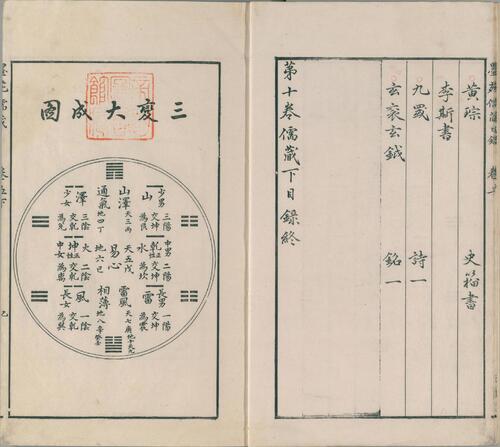 黄琮 史籀書
李斯書
九罭 詩一
玄衮玄鉞 銘一
第十卷儒藏下目錄終
三變大成圖
少男
山
三陽
交坤
為艮
中男
水
二陽
交坤
為坎
長男
雷
一陽
交坤
為震
山澤
天三丙
通氣
地四丁
天五戊
易心
地六己
雷風
天七庚
相薄
地八辛
少女
澤
三陰
交乾
為兌
中女
火
二陰
交乾
為離
長女
風
一陰
交乾
為巽